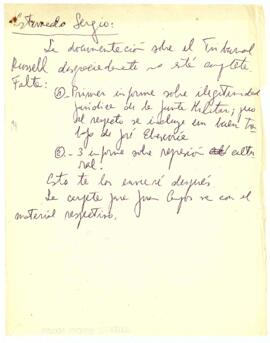 Estimado Sergio:
La documentación sobre el Tribunal
Russell desgraciadamente no está completa
Falta:
①- Primer informe sobre ilegitimidad
jurídica de la Junta Militar; pero
al respecto se incluye un buen tra
bajo de José
②.- 3 informe sobre represión cultu
ral.
Esto te los enviaré después.
La carpeta para Juan va con el
material respectivo.